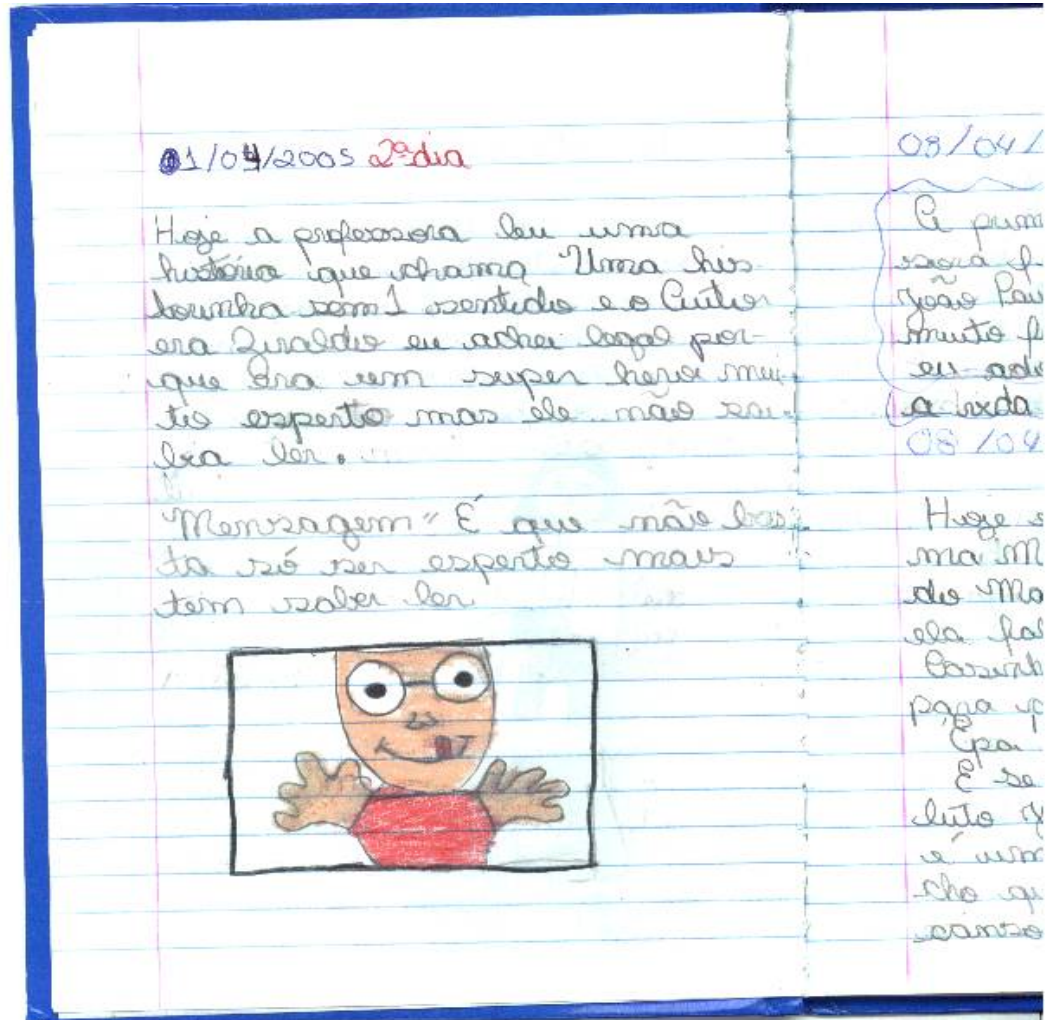 01/04/2005 2º dia
Hoje a professora leu uma
história que chama Uma his
torinha sem 1 sentido e o Autor
era Ziraldo eu achei legal por-
que era um super herói mui-
to esperto mas ele não sa-
bia ler.
"Mensagem" É que não bas-
ta só ser esperto mais
tem saber ler
08/04/
A prim
João Pau
muito f
eu ado
a roda
08/04
Hoje
ma M
do Mo
ela fal
para
Epa
E se
luto
é um
cho qu
canso